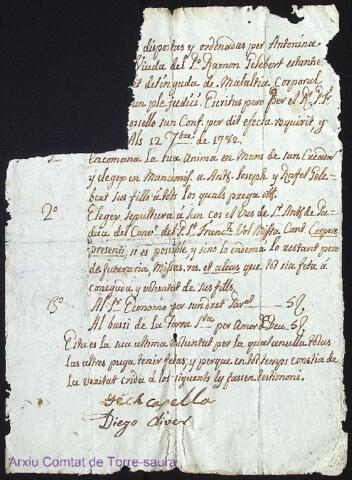 dispostas y ordenadas per Antonina
Viuda del Pr Ramon Gelebert estant
detinguda de Malaltia Corporal
ple judici. Escritas pero per el R. P. F.
sello sun Conf. per dit efecta requirit y
Als 12 7bre de 1782
encomana La sua Anima en Mans de sun Creador
y elegex en Manumos. a Ant. Joseph y Rafel Gele-
bert sus fills a tots los quals prega etc.
2º Elegex sepultura a sun cos el Vas de St. Ant. de Pa-
dua del Conv. del P. St. Francz. Vol Missa Cant. Corpore
presenti, si es possible y sino lo endema lo restant pero
de funeraria, Missas, res, et alias que tot sia feta a
coneguda y voluntat de sus fills.
3º Al Sr. Economo per sun dret Paral 5 ll
Al basi de la Terra Sta per Amor de Deu 5 ll
Esta es la sua ultima voluntat per la qual anulla totas
las altres puga tenir fetas; y porque en tot temps constia de
la veritat crida à los siguents ly fassen testimoni.
Capella
Diego Oliver
Arxiu Comtat de Torre-saura